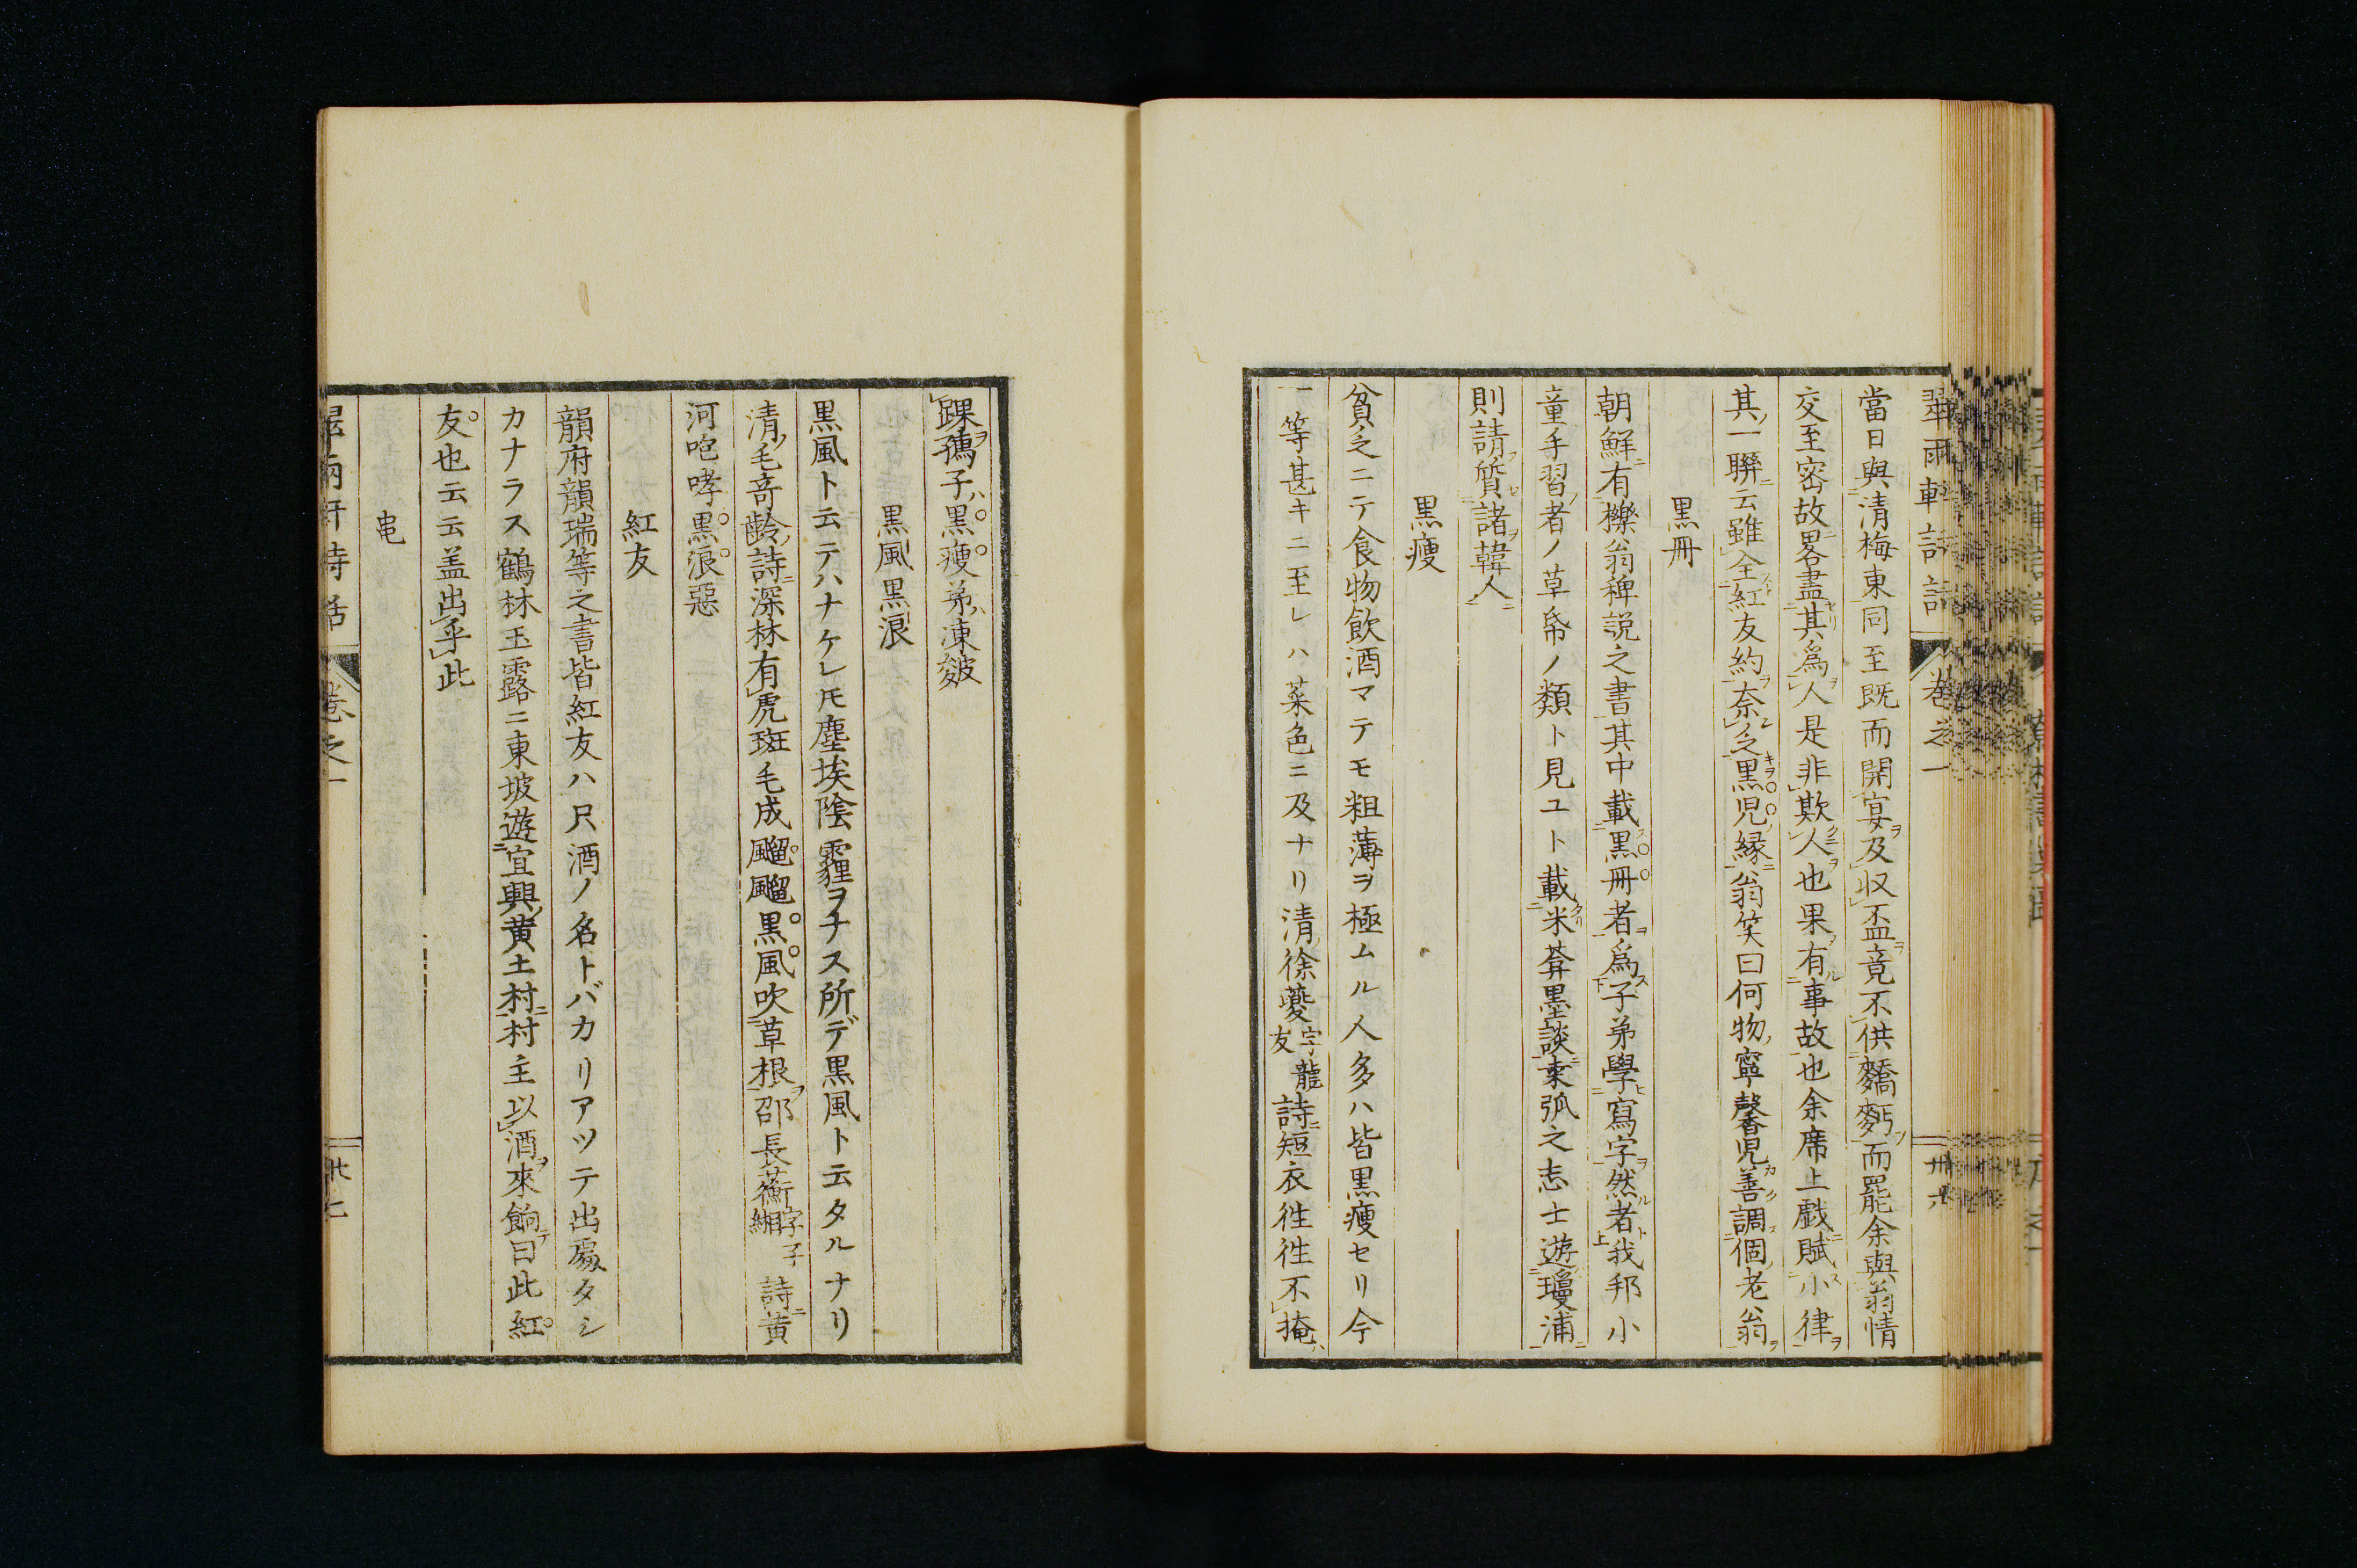 翠雨軒詩話 卷之一 廿六
當日與清梅東同至既而開宴及収盃竟不供䴔麪而罷余與翁情
交至密故畧盡其爲人是非欺人也果有事故也余席上戯賦小律
其一聯云雖全紅友約奈之黒児縁翁笑曰何物寧馨児善調個老翁
黒冊
朝鮮有櫟翁稗説之書其中載黒冊者爲子弟學寫字然者我邦小
童手習者ノ草帋ノ類ト見ユト載米葊墨談桒弧之志士遊瓊浦
則請質諸韓人
黒瘦
貧乏ニテ食物飲酒マテモ粗薄ヲ極ムル人多ハ皆黒瘦セリ今
一等甚キニ至レハ菜色ニ及ナリ清徐夔字龍友詩短衣徃徃不掩
踝孺子黒瘦弟凍皴
黒風黒浪
黒風ト云テハナケレ𪜈塵埃陰霾ヲナス所デ黒風ト云タルナリ
清毛奇齡詩深林有虎斑毛成飀飀黒風吹草根邵長蘅字子緗詩黄
河咆哮黒浪惡
紅友
韻府韻瑞等之書皆紅友ハ只酒ノ名トバカリアツテ出處タシ
カナラス鶴林玉露ニ東坡遊宜興黄土村村主以酒來餉曰此紅
友也云云盖出乎此
黾
翠雨軒詩話 卷之一 廿七